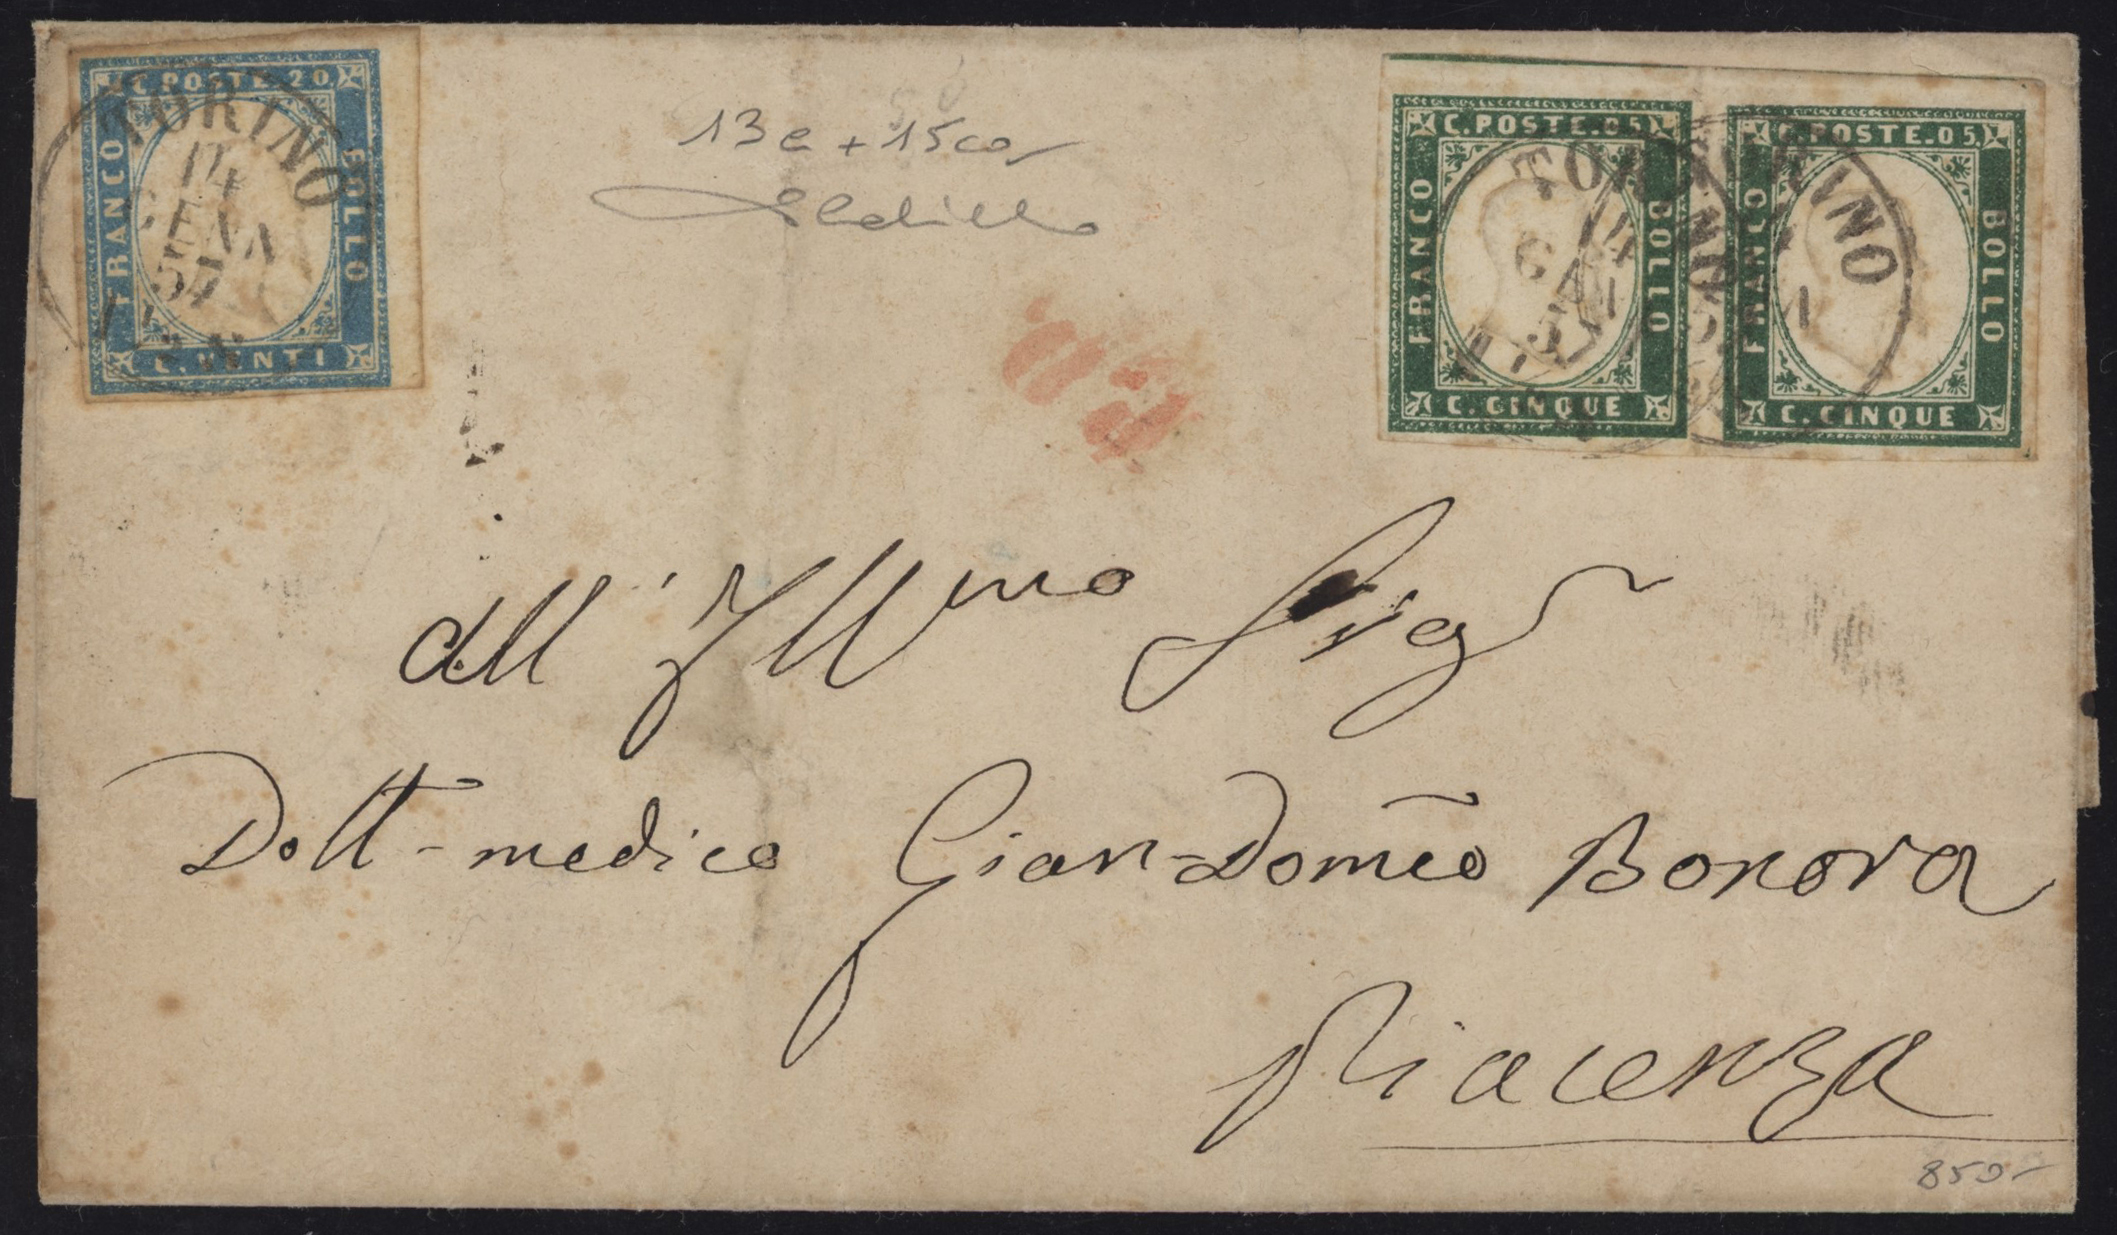 C.POSTE.20
FRANCO
BOLLO
C.VENTI
TORINO
14
GENA
57
13e + 15co
C.POSTE.05
FRANCO
BOLLO
C.CINQUE
C.POSTE.05
FRANCO
BOLLO
C.CINQUE
TORINO
14
all' Illmo Sigr
Dott-medico Gian-Domeo Bonora
Piacenza
850-